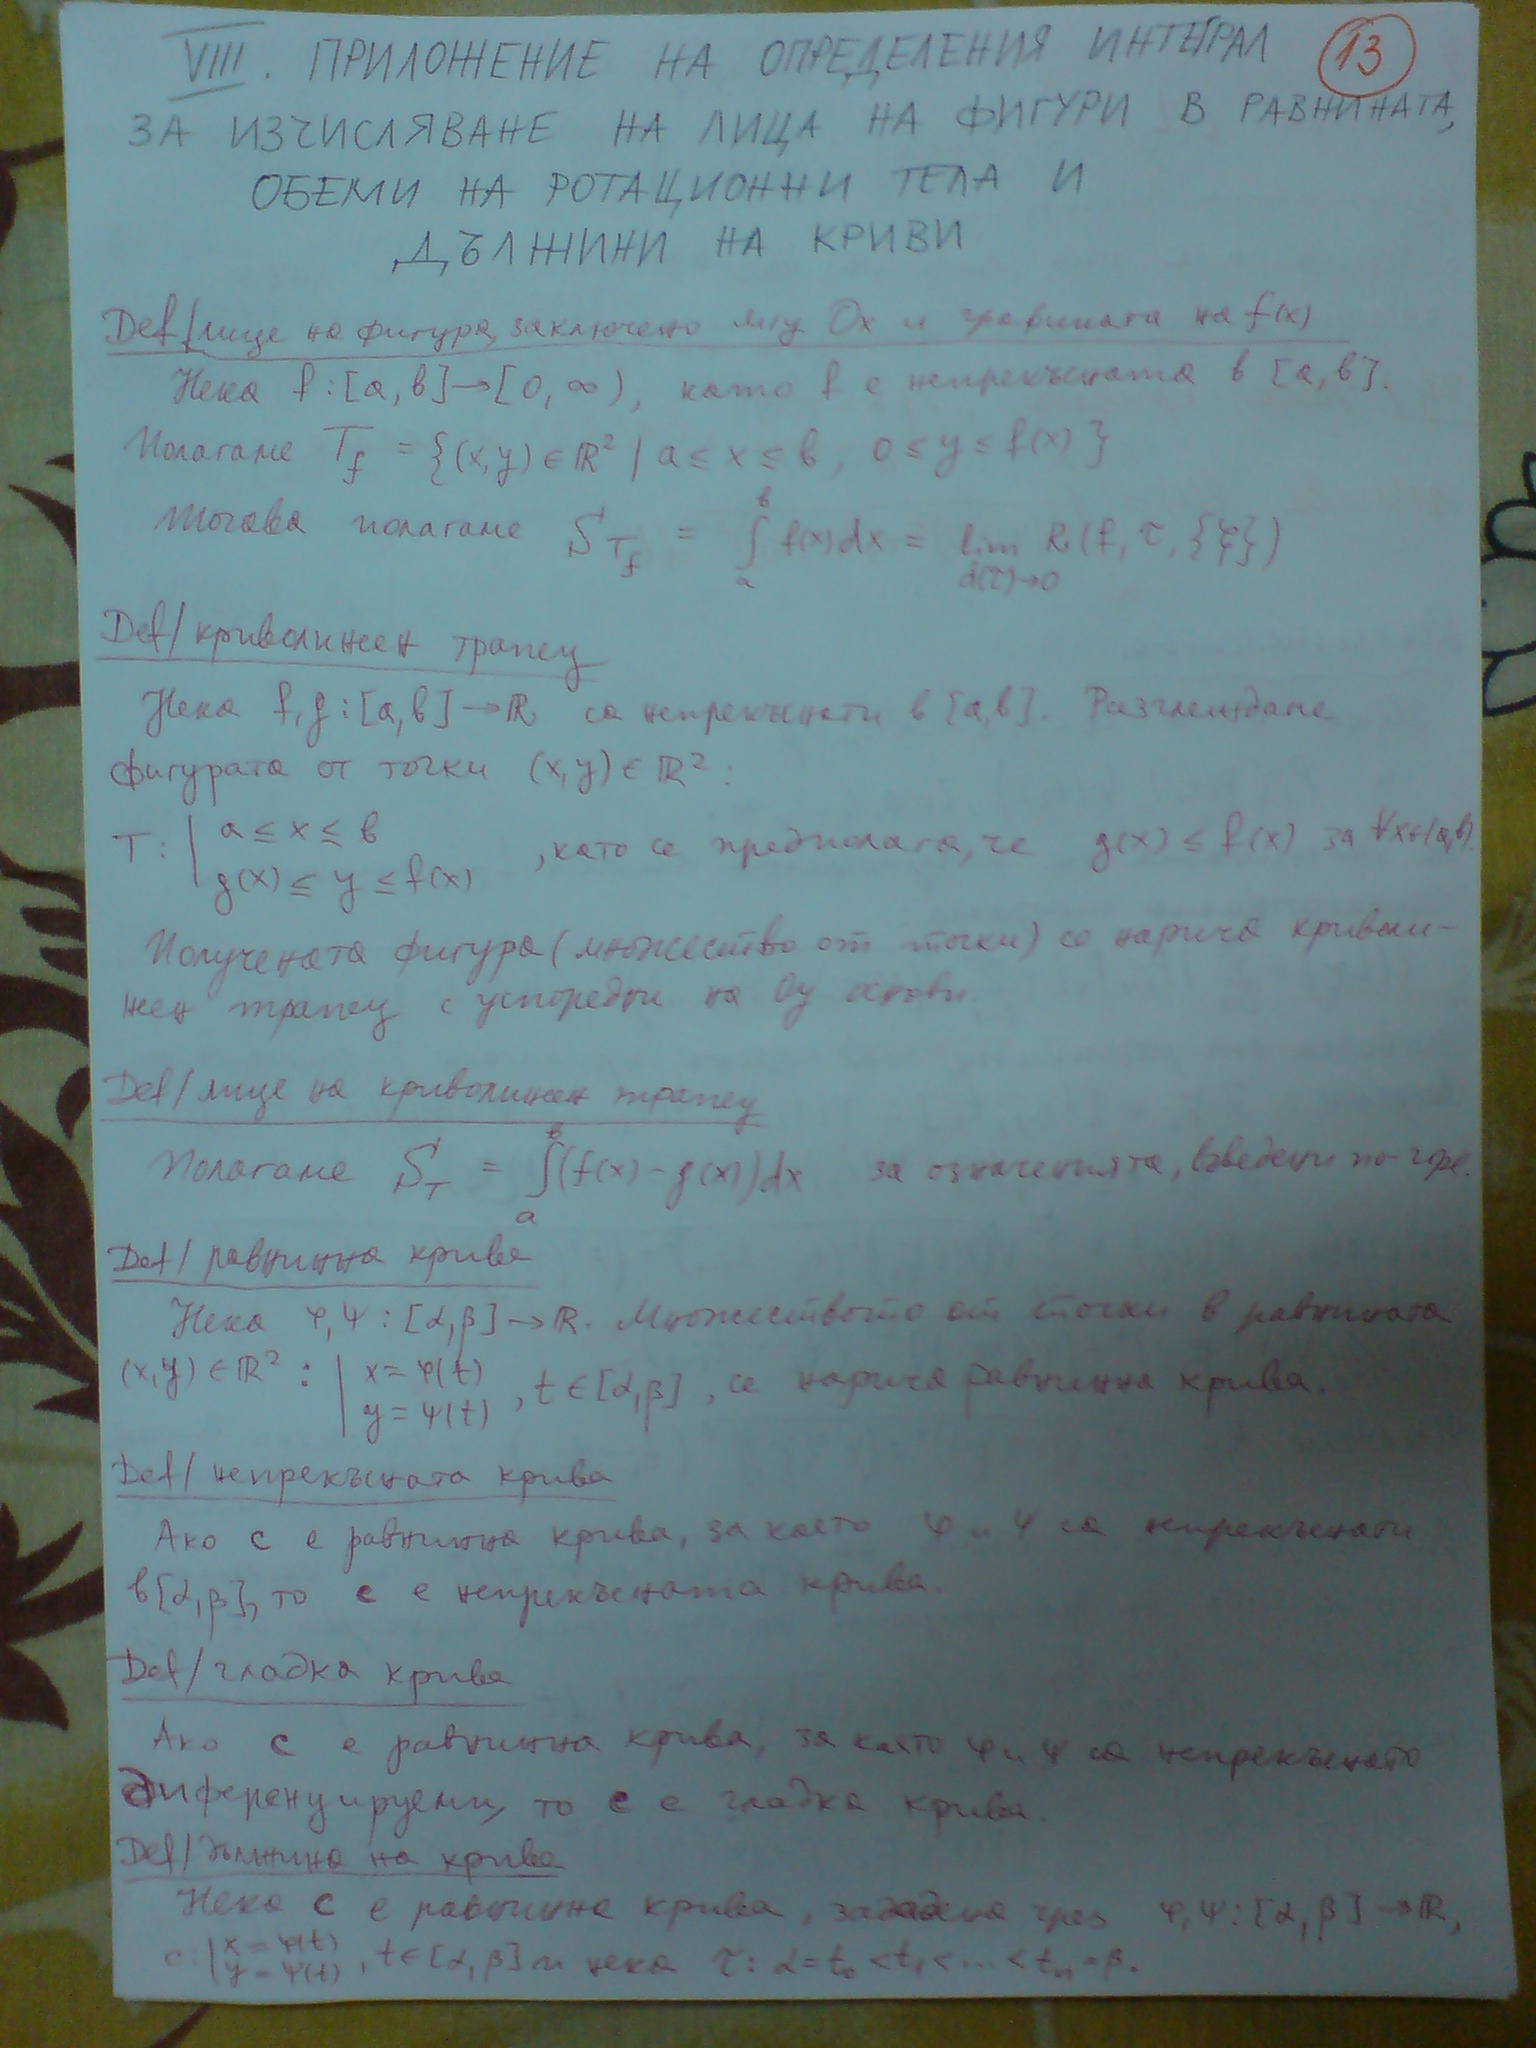 VIII. ПРИЛОЖЕНИЕ НА ОПРЕДЕЛЕНИЯ ИНТЕГРАЛ 13
ЗА ИЗЧИСЛЯВАНЕ НА ЛИЦА НА ФИГУРИ В РАВНИНАТА,
ОБЕМИ НА РОТАЦИОННИ ТЕЛА И
ДЪЛЖИНИ НА КРИВИ
Def/лице на фигура, заключено м/у Ox и графиката на f(x)
Нека f:[a,b]→[0,∞), като f е непрекъсната в [a,b].
Полагаме T_f = {(x,y)∈ℝ² | a≤x≤b, 0≤y≤f(x)}
Тогава полагаме S_{T_f} = ∫_a^b f(x)dx = lim_{d(τ)→0} R(f,τ,{ξ})
Def/криволинеен трапец
Нека f,g:[a,b]→ℝ са непрекъснати в [a,b]. Разглеждаме
фигурата от точки (x,y)∈ℝ²:
T: | a≤x≤b
g(x)≤y≤f(x) , като се предполага, че g(x)≤f(x) за ∀x∈[a,b].
Получената фигура (множество от точки) се нарича криволи-
неен трапец с успоредни на Oy основи.
Def/лице на криволинеен трапец
Полагаме S_T = ∫_a^b (f(x)-g(x))dx за означенията, въведени по-горе.
Def/равнинна крива
Нека φ,ψ:[α,β]→ℝ. Множеството от точки в равнината
(x,y)∈ℝ²: | x=φ(t)
y=ψ(t) , t∈[α,β], се нарича равнинна крива.
Def/непрекъсната крива
Ако c е равнинна крива, за която φ и ψ са непрекъснати
в [α,β], то c е непрекъсната крива.
Def/гладка крива
Ако c е равнинна крива, за която φ и ψ са непрекъснато
диференцируеми, то c е гладка крива.
Def/дължина на крива
Нека c е равнинна крива, зададена чрез φ,ψ:[α,β]→ℝ,
c: | x=φ(t)
y=ψ(t) , t∈[α,β] и нека τ: α=t₀<t₁<...<tₙ=β.